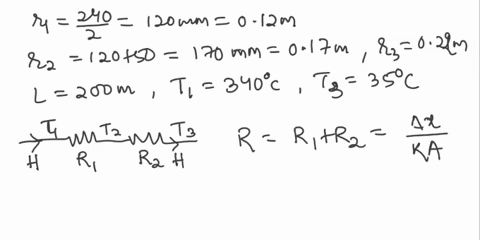 r₁ = 240/2 = 120mm = 0.12m
r₂ = 120+50 = 170 mm = 0.17m , r₃ = 0.22m
L = 200m , T₁ = 340°C , T₃ = 35°C
T₁ T₂ T₃
H R₁ R₂ H
R = R₁+R₂ = Δx/KA